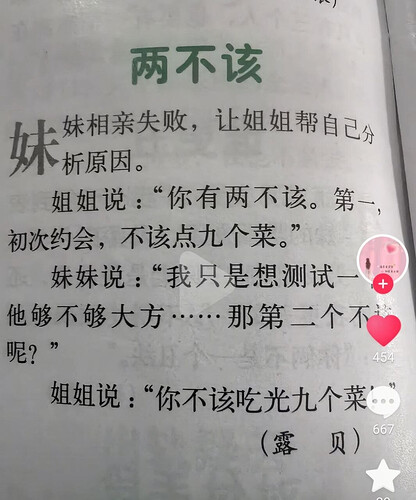 两不该
妹妹相亲失败，让姐姐帮自己分
析原因。
姐姐说：“你有两不该。第一，
初次约会，不该点九个菜。”
妹妹说：“我只是想测试一
他够不够大方……那第二个不
呢？”
姐姐说：“你不该吃光九个菜
（露 贝）
454
667